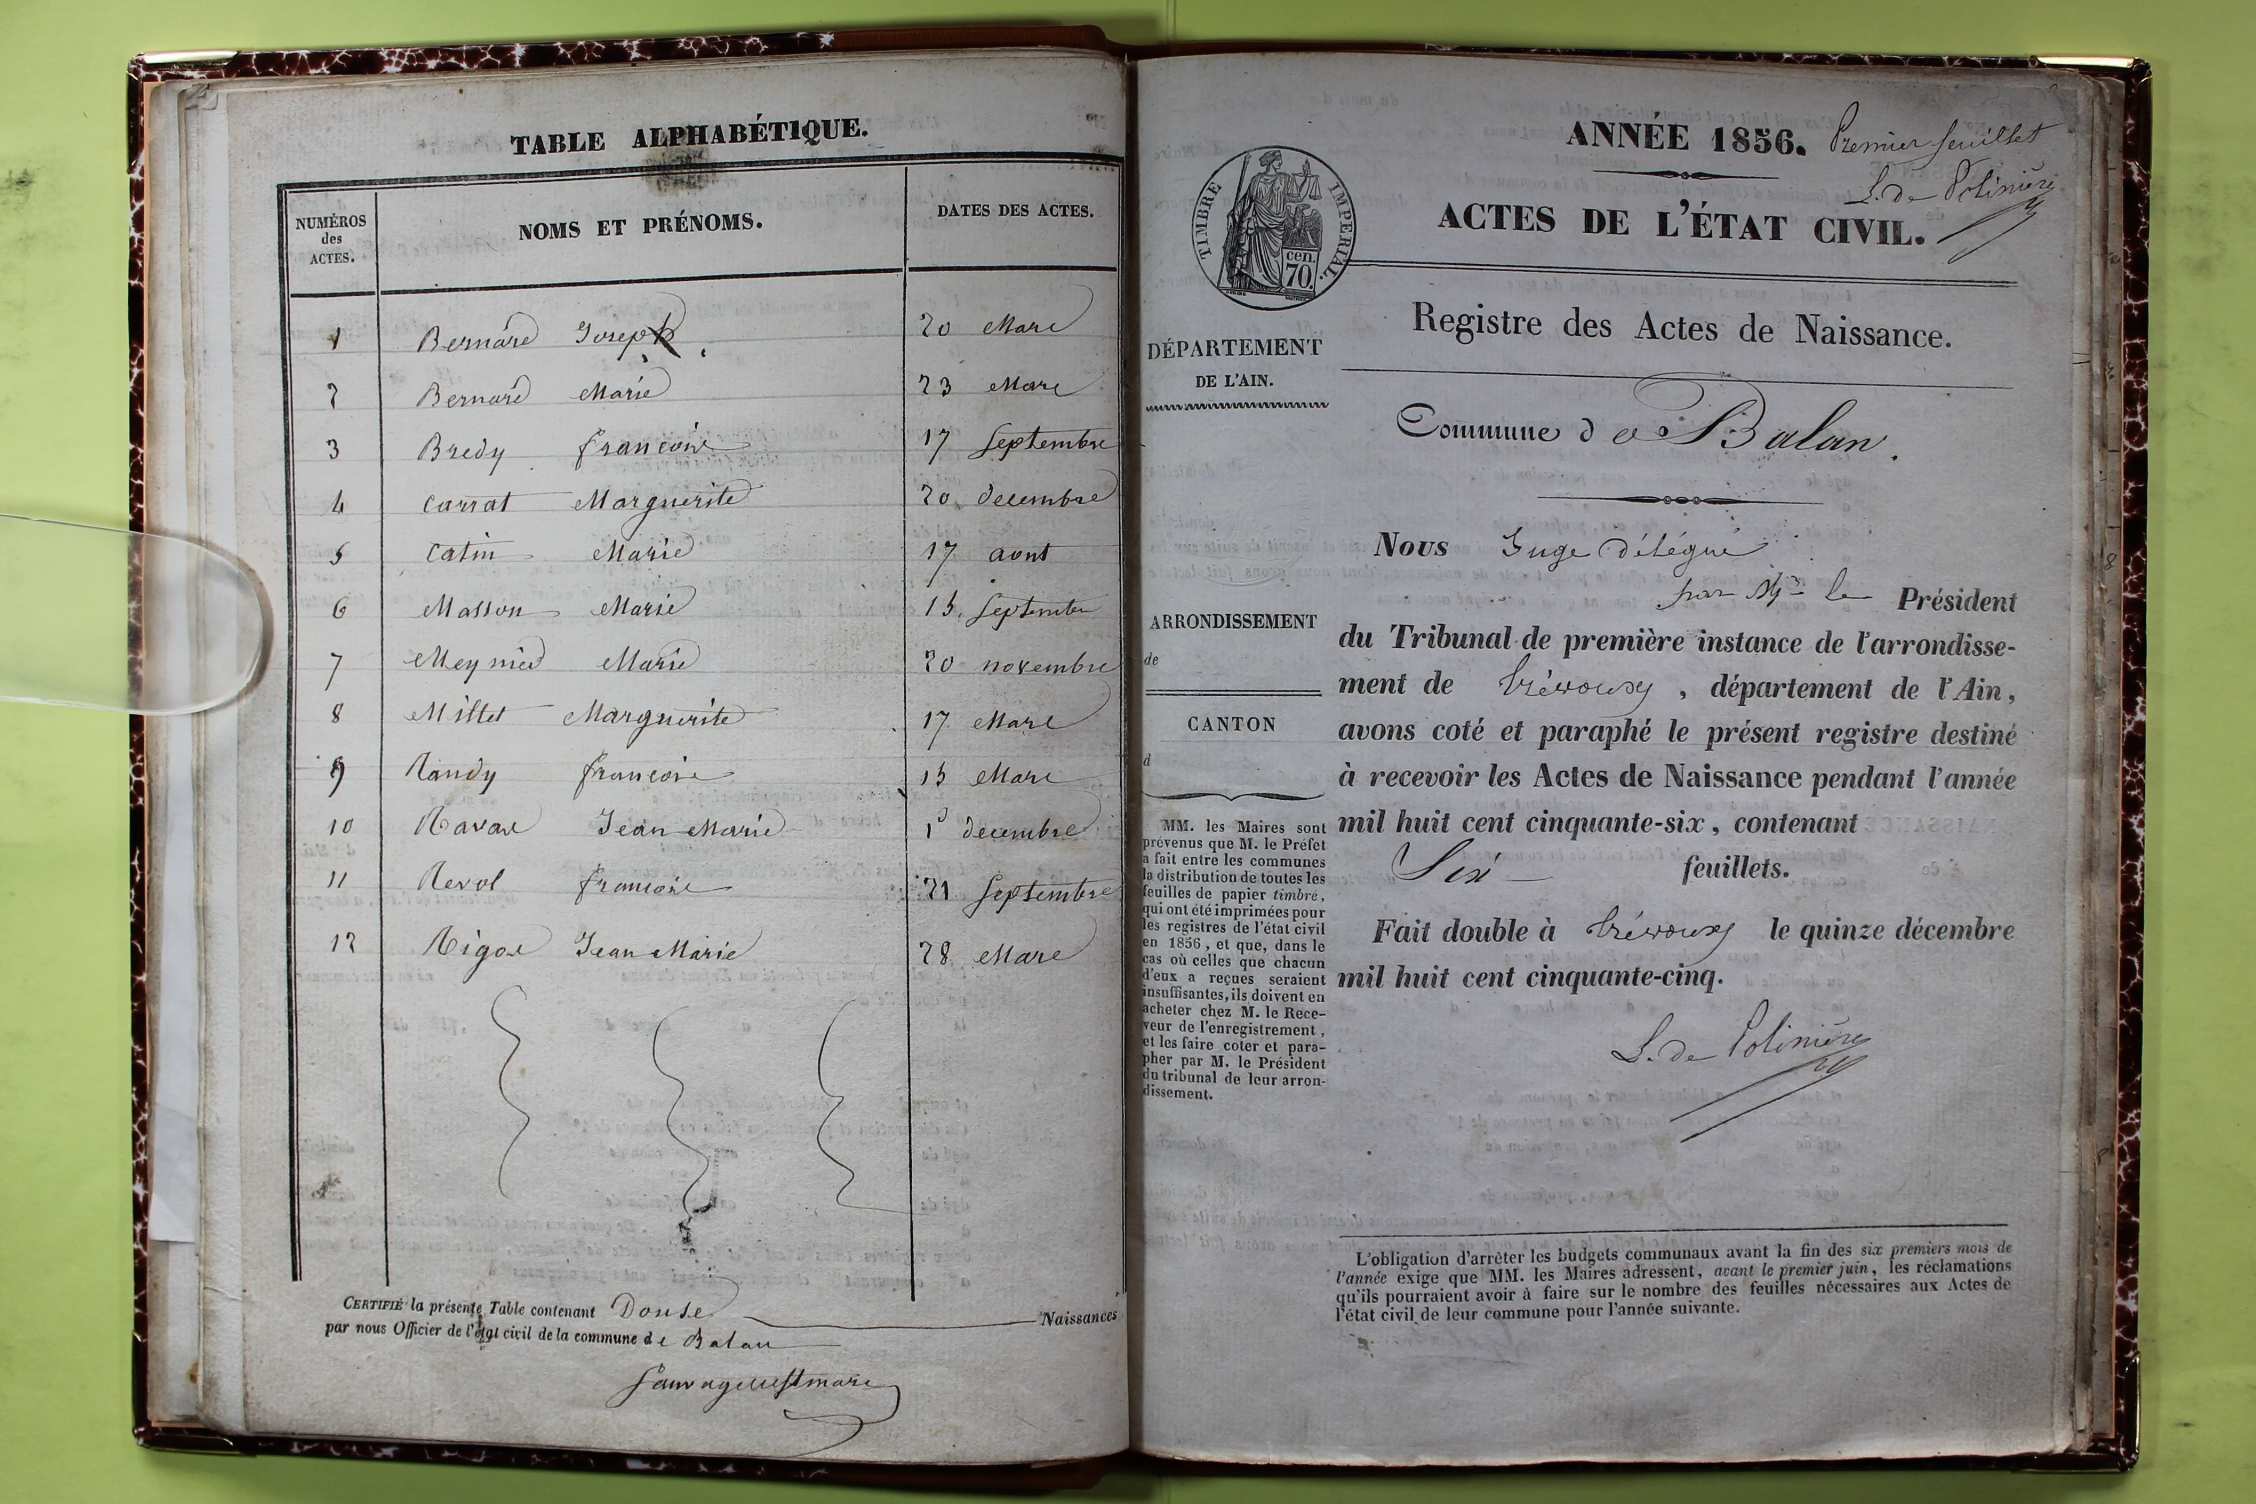 TABLE ALPHABÉTIQUE.
NUMÉROS des ACTES. NOMS ET PRÉNOMS. DATES DES ACTES.
1 Bernard Joseph 20 Mars
2 Bernard Marie 23 Mars
3 Bredy françoise 17 Septembre
4 Carrat Marguerite 20 decembre
5 Catin Marie 17 aout
6 Masson Marie 15 Septembre
7 Meynied Marie 20 novembre
8 Millet Marguerite 17 Mars
9 Randy françoise 15 Mars
10 Ravas Jean Marie 1 decembre
11 Revol françoise 21 Septembre
12 Rigos Jean Marie 28 Mars
CERTIFIÉ la présente Table contenant Douse Naissances
par nous Officier de l'état civil de la commune de Balan
ANNÉE 1856. Premier feuillet
L. de Polinière
ACTES DE L'ÉTAT CIVIL.
TIMBRE IMPERIAL.
cen.
70.
Registre des Actes de Naissance.
DÉPARTEMENT
DE L'AIN.
Commune de Balan.
ARRONDISSEMENT
de
CANTON
d
MM. les Maires sont
prévenus que M. le Préfet
a fait entre les communes
la distribution de toutes les
feuilles de papier timbré,
qui ont été imprimées pour
les registres de l'état civil
en 1856, et que, dans le
cas où celles que chacun
d'eux a reçues seraient
insuffisantes, ils doivent en
acheter chez M. le Rece-
veur de l'enregistrement,
et les faire coter et para-
pher par M. le Président
du tribunal de leur arron-
dissement.
Nous Juge délégué
par Mr le Président
du Tribunal de première instance de l'arrondisse-
ment de Trévoux, département de l'Ain,
avons coté et paraphé le présent registre destiné
à recevoir les Actes de Naissance pendant l'année
mil huit cent cinquante-six, contenant
Six feuillets.
Fait double à Trévoux le quinze décembre
mil huit cent cinquante-cinq.
L. de Polinière
L'obligation d'arrêter les budgets communaux avant la fin des six premiers mois de
l'année exige que MM. les Maires adressent, avant le premier juin, les réclamations
qu'ils pourraient avoir à faire sur le nombre des feuilles nécessaires aux Actes de
l'état civil de leur commune pour l'année suivante.